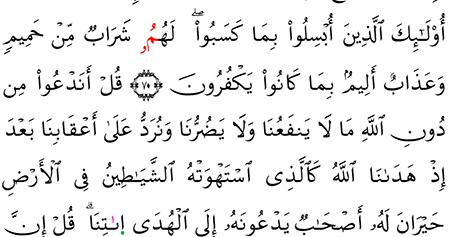 أُوْلَـٰٓئِكَ اَ۬لَّذِينَ أُبْسِلُواْ بِمَا كَسَبُواْۖ لَهُمُۥ شَرَابٌ مِّنْ حَمِيمٍ
وَعَذَابٌ أَلِيمُۢ بِمَا كَانُواْ يَكْفُرُونَۖ ۝٧٠ قُلْ أَنَدْعُواْ مِن
دُونِ اِ۬للَّهِ مَا لَا يَنفَعُنَا وَلَا يَضُرُّنَا وَنُرَدُّ عَلَىٰٓ أَعْقَابِنَا بَعْدَ
إِذْ هَدَىٰنَا اَ۬للَّهُ كَالَّذِى اِ۪سْتَهْوَتْهُ اُ۬لشَّيَـٰطِينُ فِى اِ۬لْأَرْضِ
حَيْرَانَ لَهُۥٓ أَصْحَـٰبٌ يَدْعُونَهُۥٓ إِلَى اَ۬لْهُدَى اَ۪ئْتِنَاۗ قُلْ إِنَّ